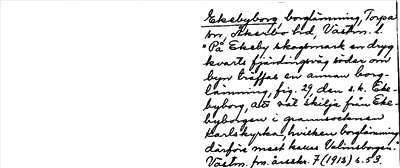 Ekebyborg, borglämning, Torpa
sn, Åkerbo hd, Västm. l.
"På Ekeby skogsmark en dryg
kvarts fjärdingsväg söder om
byn träffas en annan borg-
lämning, fig. 29, den s.k. Eke-
byborg, att väl skilja från Eke-
byborgen i grannsocknen
Karlskyrka, hvilken borglämning
därför mest kallas Valinsborgen."
Västm. fns. årsskr. 7 (1915) s. 53.